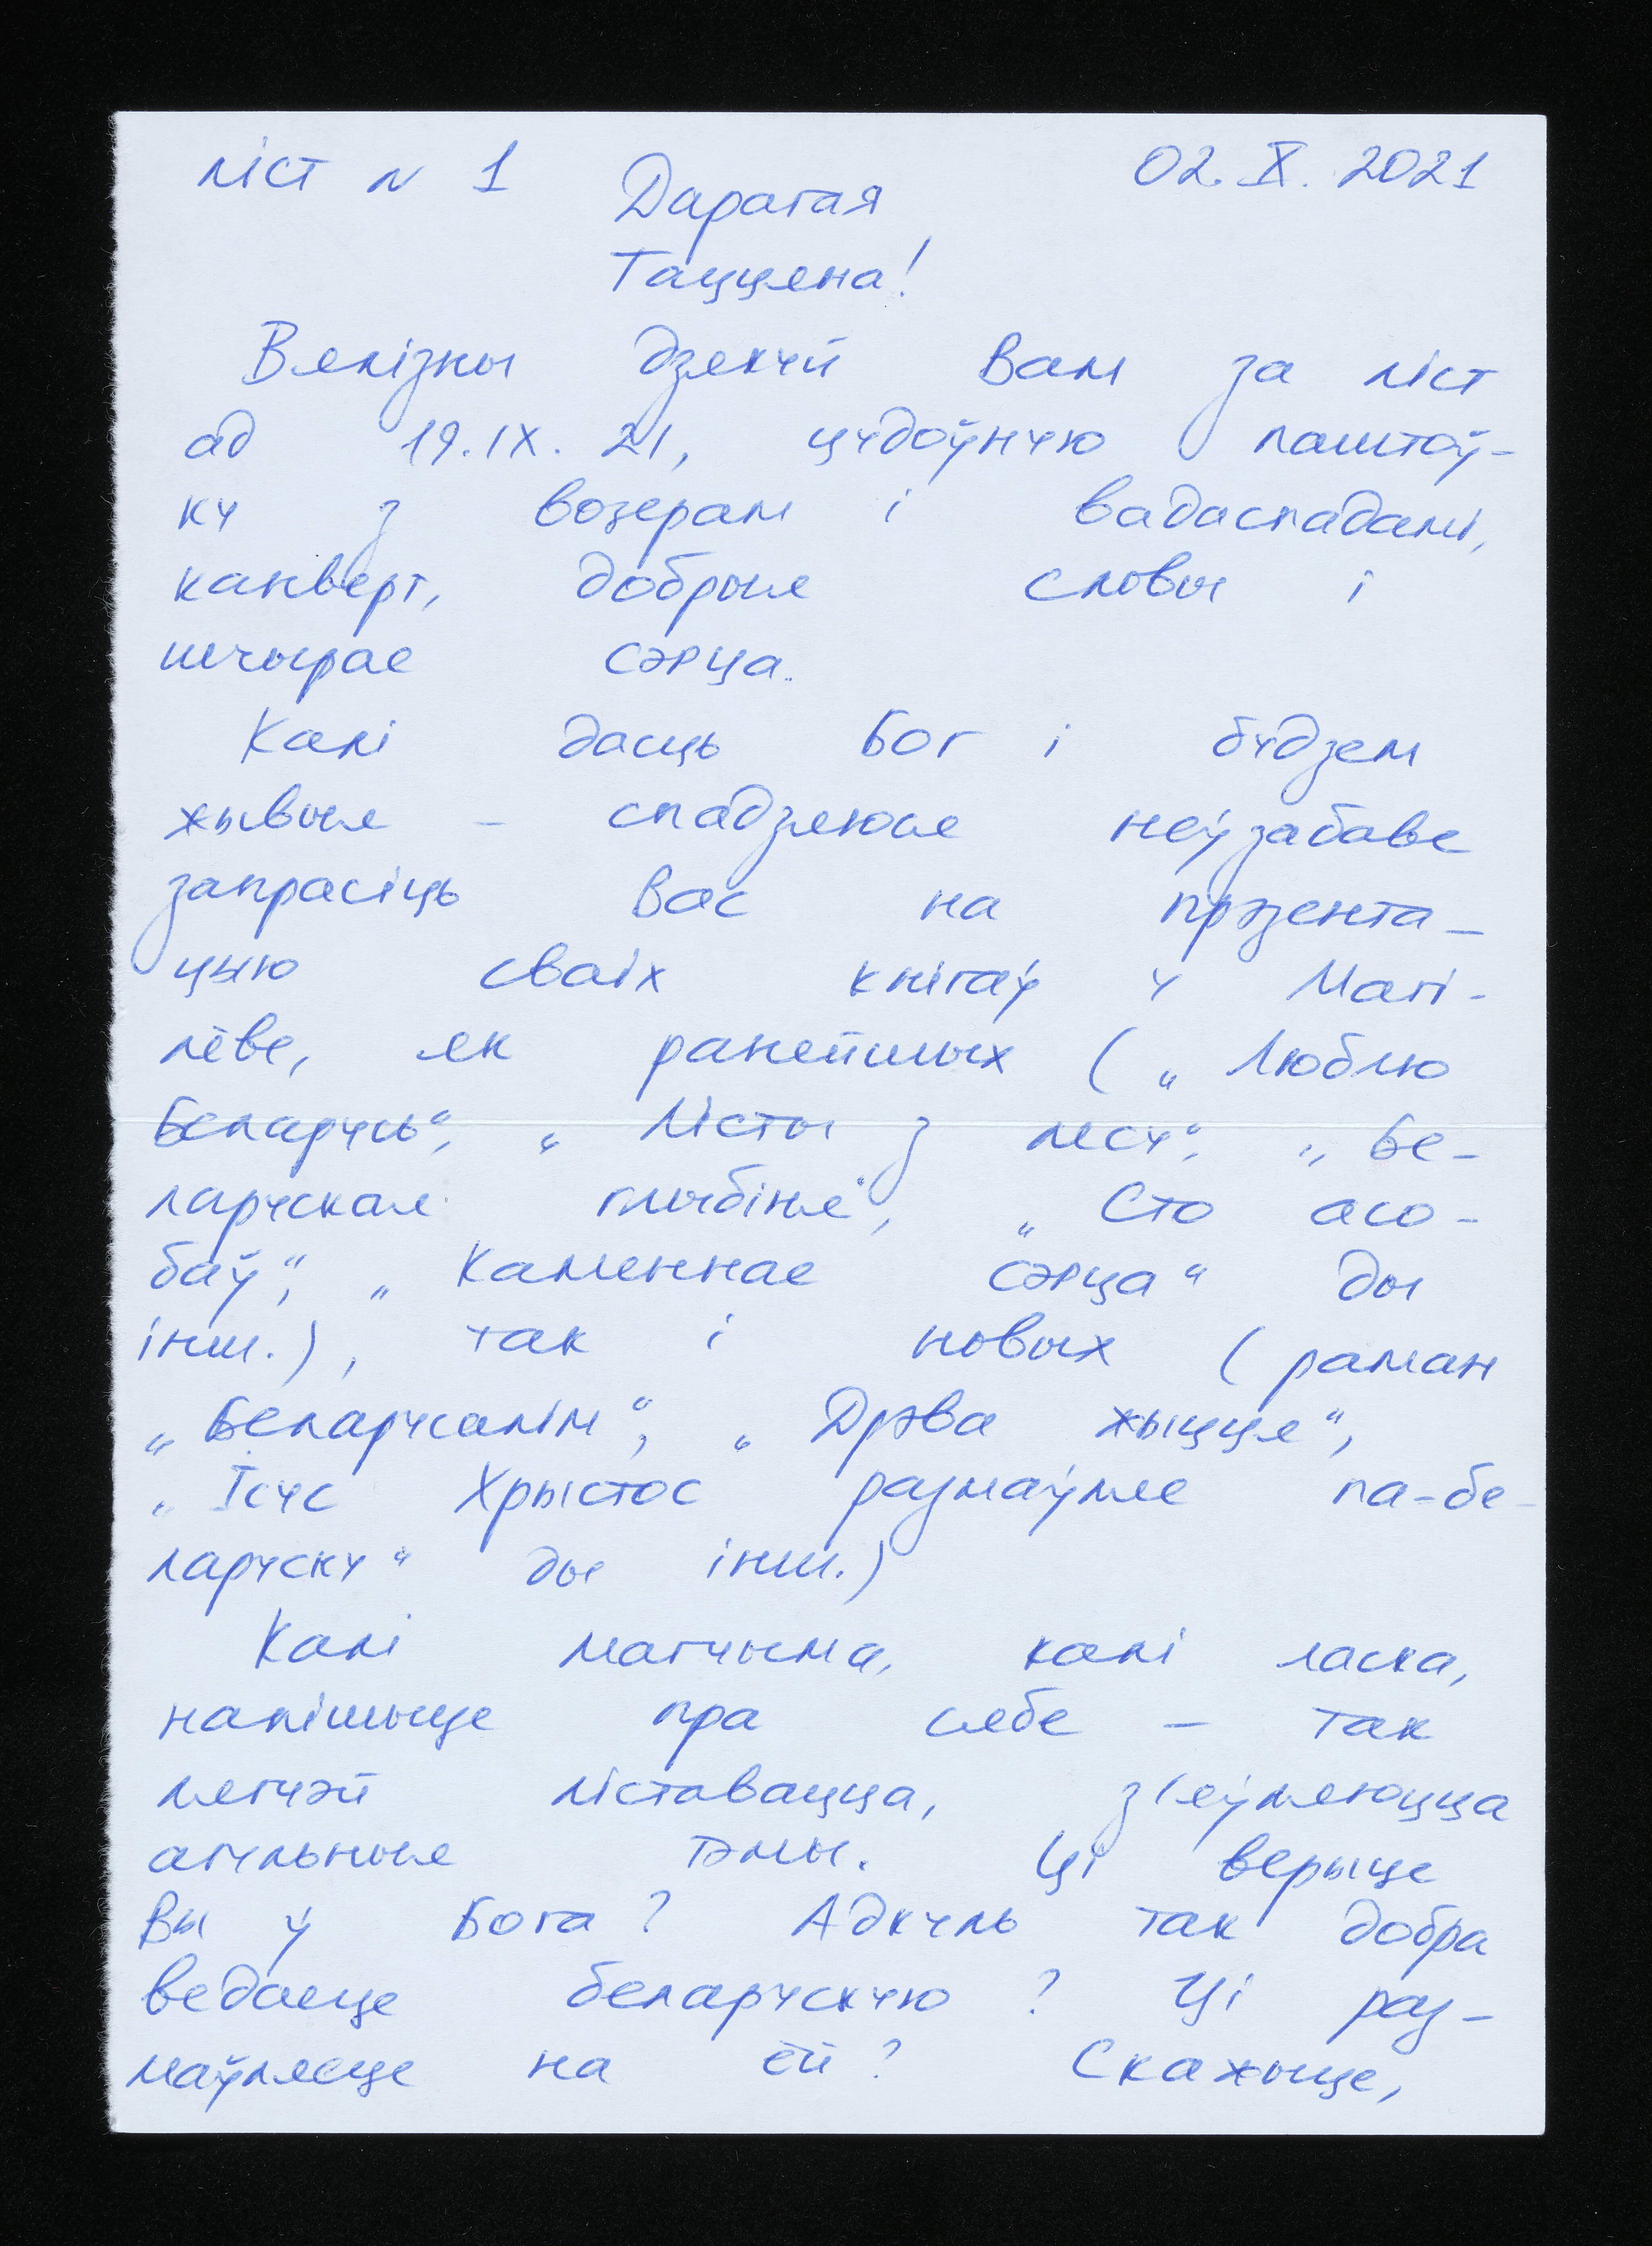 ліст N 1
02. X. 2021
Дарагая
Таццяна!
Вялізны дзякуй Вам за ліст
ад 19. IX. 21, цудоўную паштоў-
ку з возерам і вадаспадамі,
канверт, добрыя словы і
шчырае сэрца.
Калі дасць Бог і будзем
жывыя – спадзяюся неўзабаве
запрасіць Вас на прэзента-
цыю сваіх кнігаў у Магі-
лёве, як ранейшых („Люблю
Беларусь“, „Лісты з лесу“, „Бе-
ларуская глыбіня“, „Сто асо-
баў“, „Каменнае сэрца“ ды
інш.), так і новых (раман
„Беларусалім“, „Дрэва жыцця“,
„Ісус Хрыстос размаўляе па-бе-
ларуску“ ды інш.)
Калі магчыма, калі ласка,
напішыце пра сябе – так
лягчэй ліставацца, з'яўляюцца
агульныя тэмы. Ці верыце
Вы ў Бога? Адкуль так добра
ведаеце беларускую? Ці раз-
маўляеце на ёй? Скажыце,